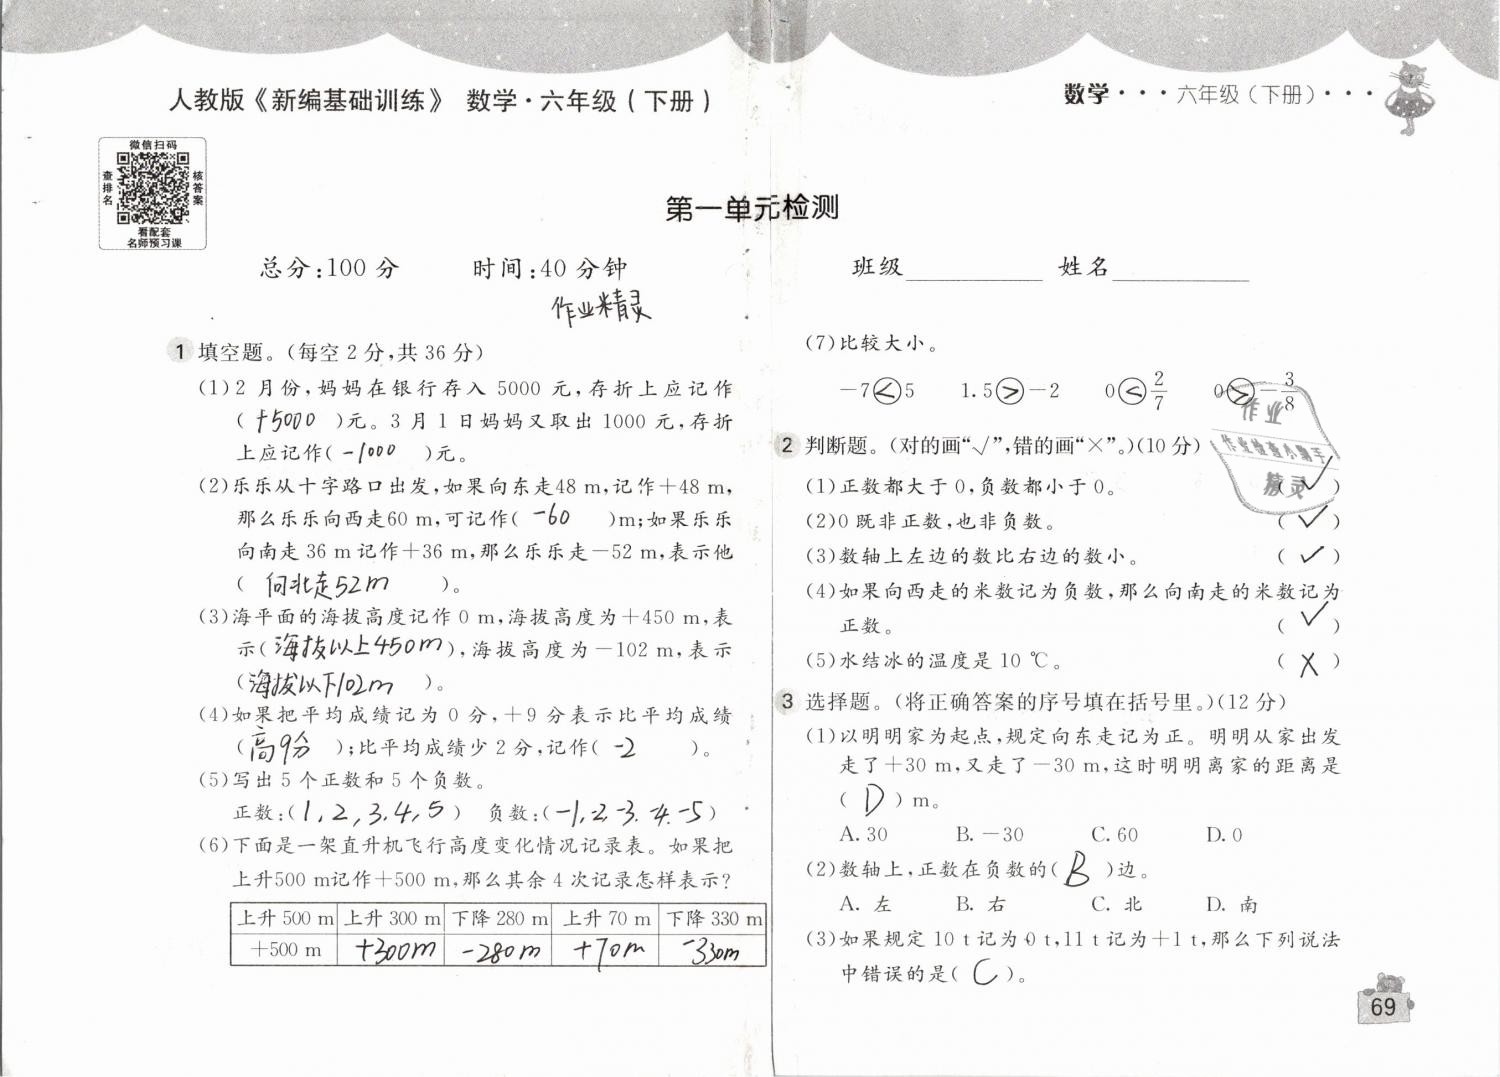 人教版《新编基础训练》 数学·六年级(下册)
数学···六年级(下册)···
微信扫码
查排名
核答案
看配套
名师预习课
第一单元检测
总分:100 分 时间:40 分钟
班级 姓名
作业精灵
1 填空题。(每空 2 分,共 36 分)
(1)2 月份,妈妈在银行存入 5000 元,存折上应记作
( +5000 )元。3 月 1 日妈妈又取出 1000 元,存折
上应记作( -1000 )元。
(2)乐乐从十字路口出发,如果向东走48 m,记作+48 m,
那么乐乐向西走60 m,可记作( -60 )m;如果乐乐
向南走 36 m 记作+36 m,那么乐乐走-52 m,表示他
( 向北走52m )。
(3)海平面的海拔高度记作 0 m,海拔高度为+450 m,表
示(海拔以上450m),海拔高度为-102 m,表示
(海拔以下102m )。
(4)如果把平均成绩记为 0 分,+9 分表示比平均成绩
( 高9分 );比平均成绩少 2 分,记作( -2 )。
(5)写出 5 个正数和 5 个负数。
正数:(1,2,3,4,5) 负数:(-1,-2,-3.-4.-5)
(6)下面是一架直升机飞行高度变化情况记录表。如果把
上升500 m记作+500 m,那么其余 4 次记录怎样表示?
上升 500 m 上升 300 m 下降 280 m 上升 70 m 下降 330 m
+500 m +300m -280m +70m -330m
(7)比较大小。
-7<5 1.5>-2 0<2/7 0>-3/8
作业
作业检查小帮手
精灵
2 判断题。(对的画“√”,错的画“×”。)(10 分)
(1)正数都大于 0,负数都小于 0。 ( √ )
(2)0 既非正数,也非负数。 ( √ )
(3)数轴上左边的数比右边的数小。 ( √ )
(4)如果向西走的米数记为负数,那么向南走的米数记为
正数。 ( √ )
(5)水结冰的温度是 10 ℃。 ( X )
3 选择题。(将正确答案的序号填在括号里。)(12 分)
(1)以明明家为起点,规定向东走记为正。明明从家出发
走了+30 m,又走了-30 m,这时明明离家的距离是
( D )m。
A. 30 B. -30 C. 60 D. 0
(2)数轴上,正数在负数的( B )边。
A. 左 B. 右 C. 北 D. 南
(3)如果规定 10 t 记为 0 t,11 t 记为+1 t,那么下列说法
中错误的是( C )。
69